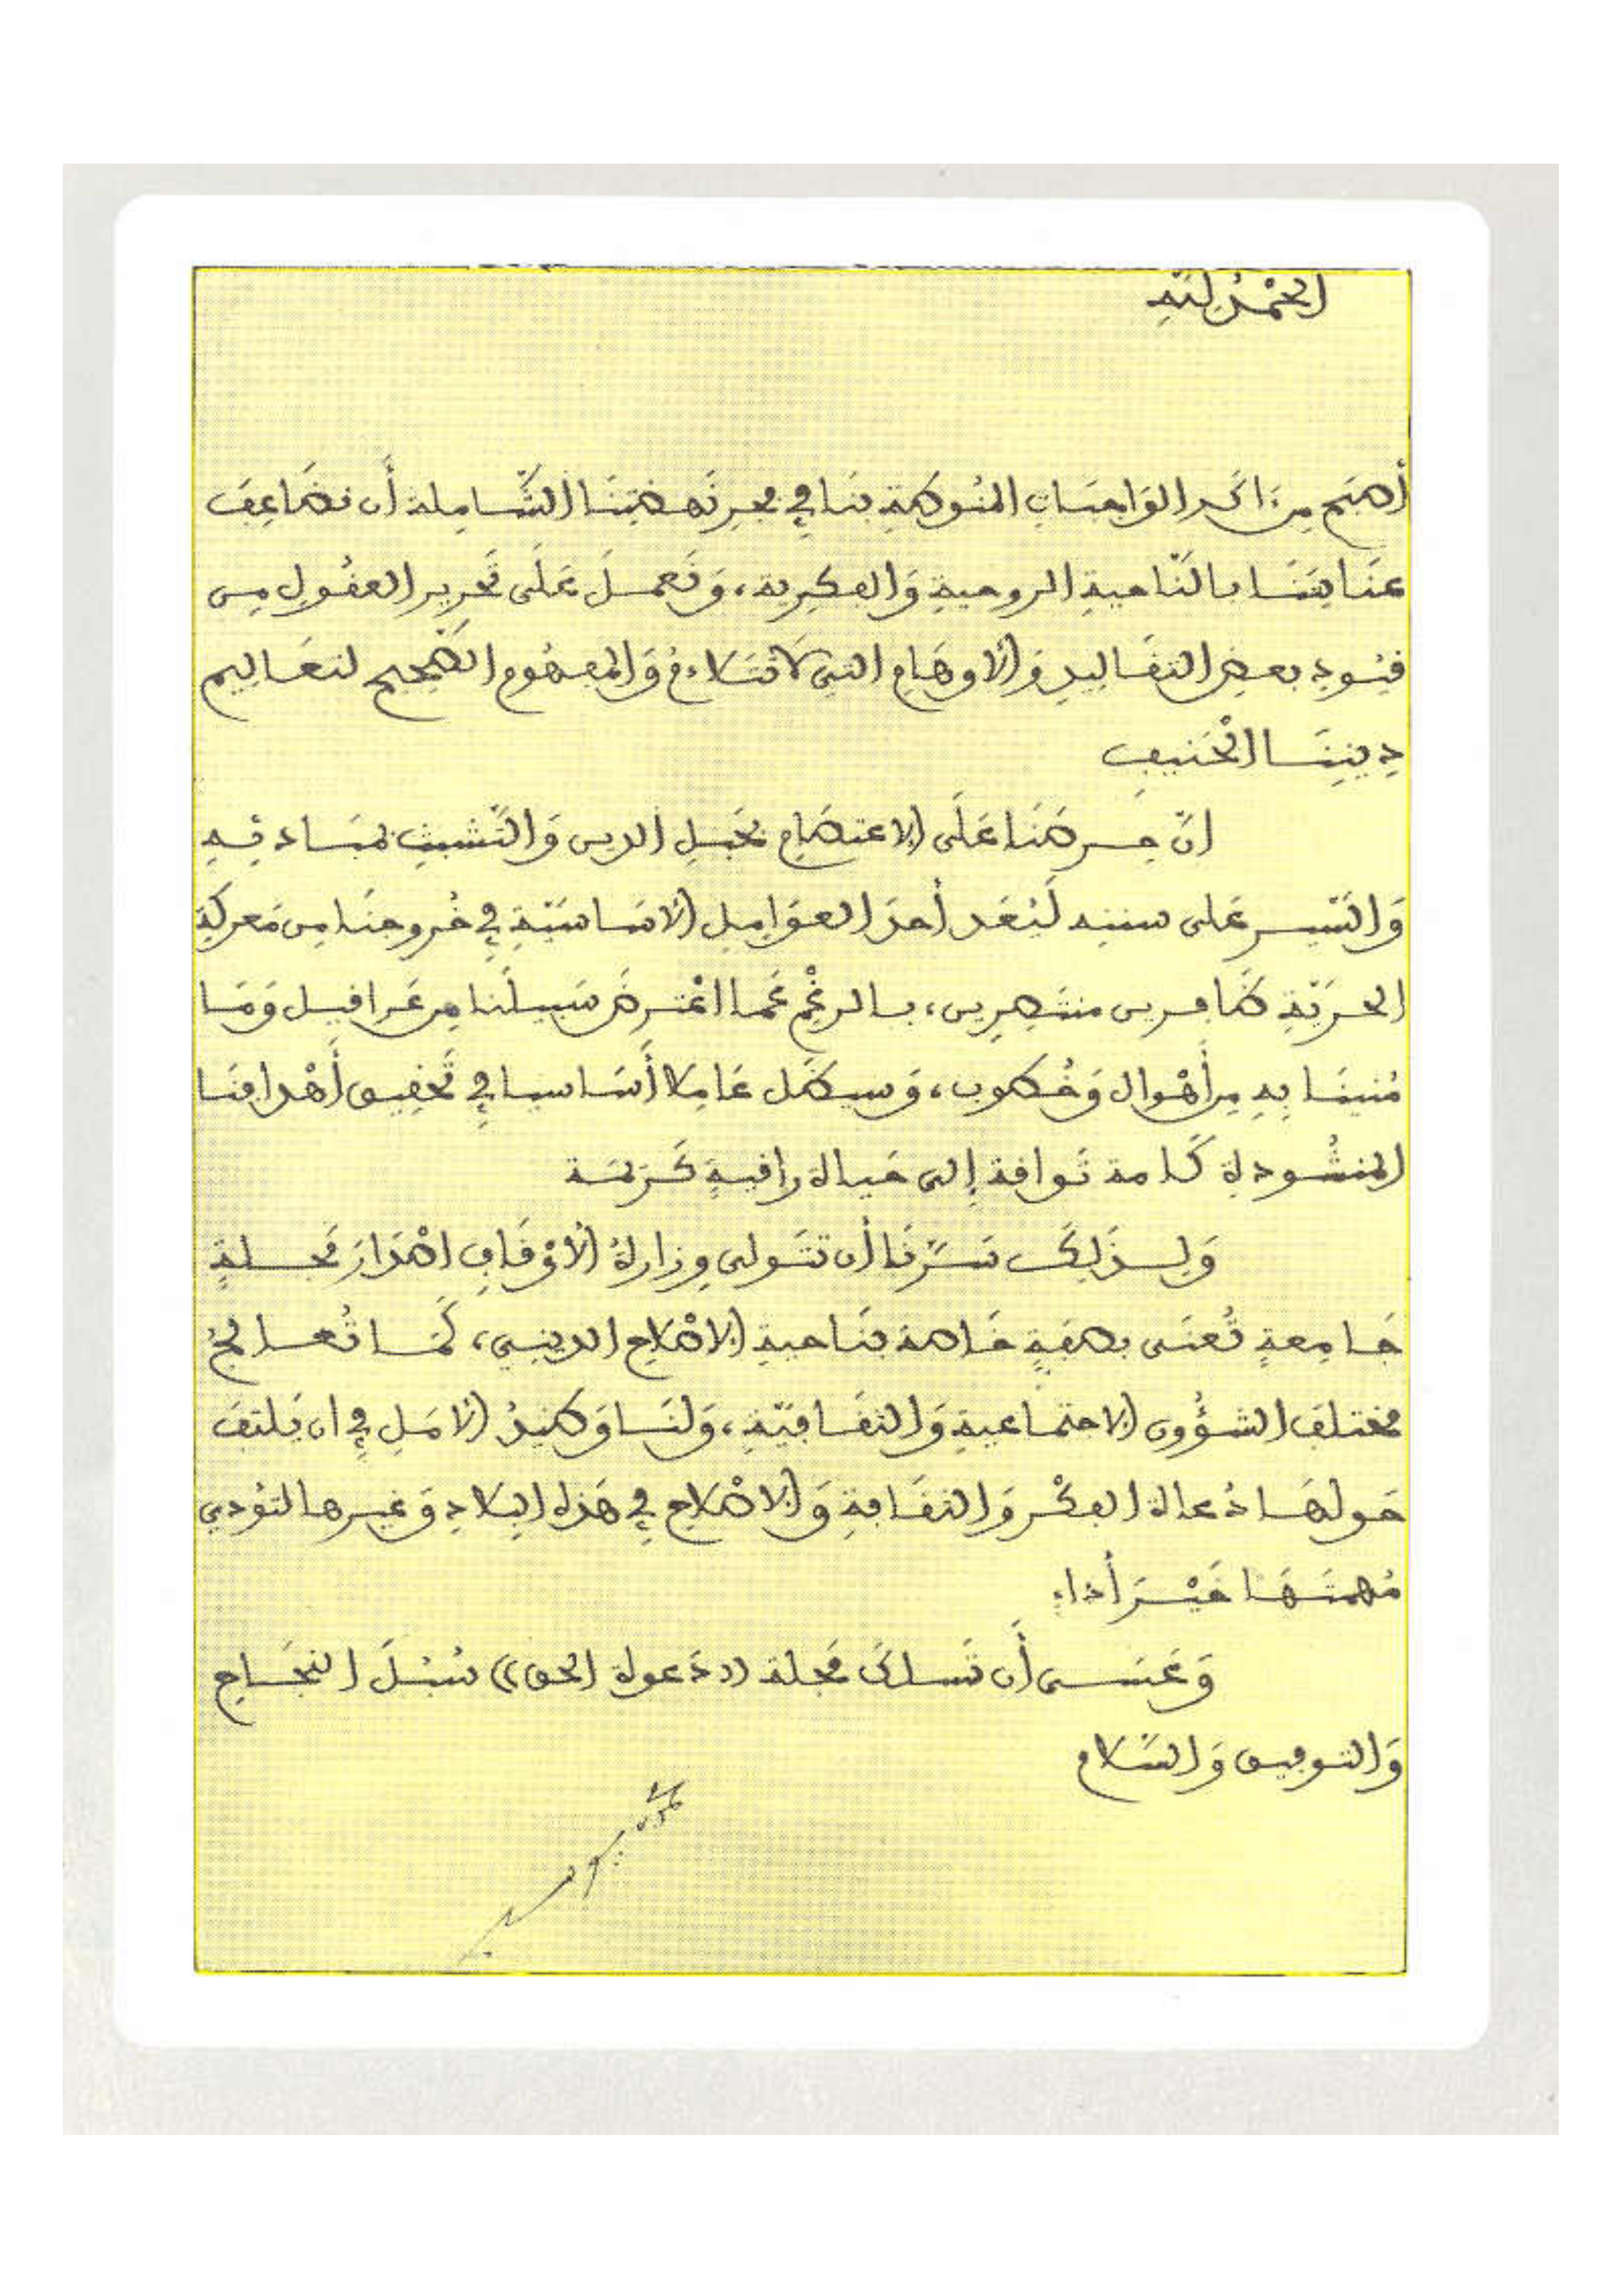 الحمد لله
أصبح من آكد الواجبات المنوطة بنا في فجر نهضتنا الشاملة أن نضاعف
عنايتنا بالناحية الروحية والفكرية، ونعمل على تحرير العقول من
قيود بعض التقاليد والأوهام التي لا تتلاءم والمفهوم الصحيح لتعاليم
ديننا الحنيف
ان حرصنا على الاعتصام بحبل الدين والتشبث بمبادئه
والسير على سننه ليعد أحد العوامل الأساسية في خروجنا من معركة
الحرية ظافرين منتصرين، بالرغم عما اعترض سبيلنا من عراقيل وما
منينا به من أهوال وخطوب، وسيظل عاملا أساسيا في تحقيق أهدافنا
المنشودة كأمة تواقة إلى حياة راقية كريمة
ولذلك سرنا أن تتولى وزارة الأوقاف اصدار مجلة
جامعة تعنى بصفة خاصة بناحية الإصلاح الديني، كما تعالج
مختلف الشؤون الاجتماعية والثقافية، ولنا وطيد الأمل في ان يلتف
حولها دعاة الفكر والثقافة والإصلاح في هذه البلاد وغيرها لتؤدي
مهمتها خير أداء
وعسى أن تسلك مجلة ((دعوة الحق)) سبل النجاح
والتوفيق والسلام